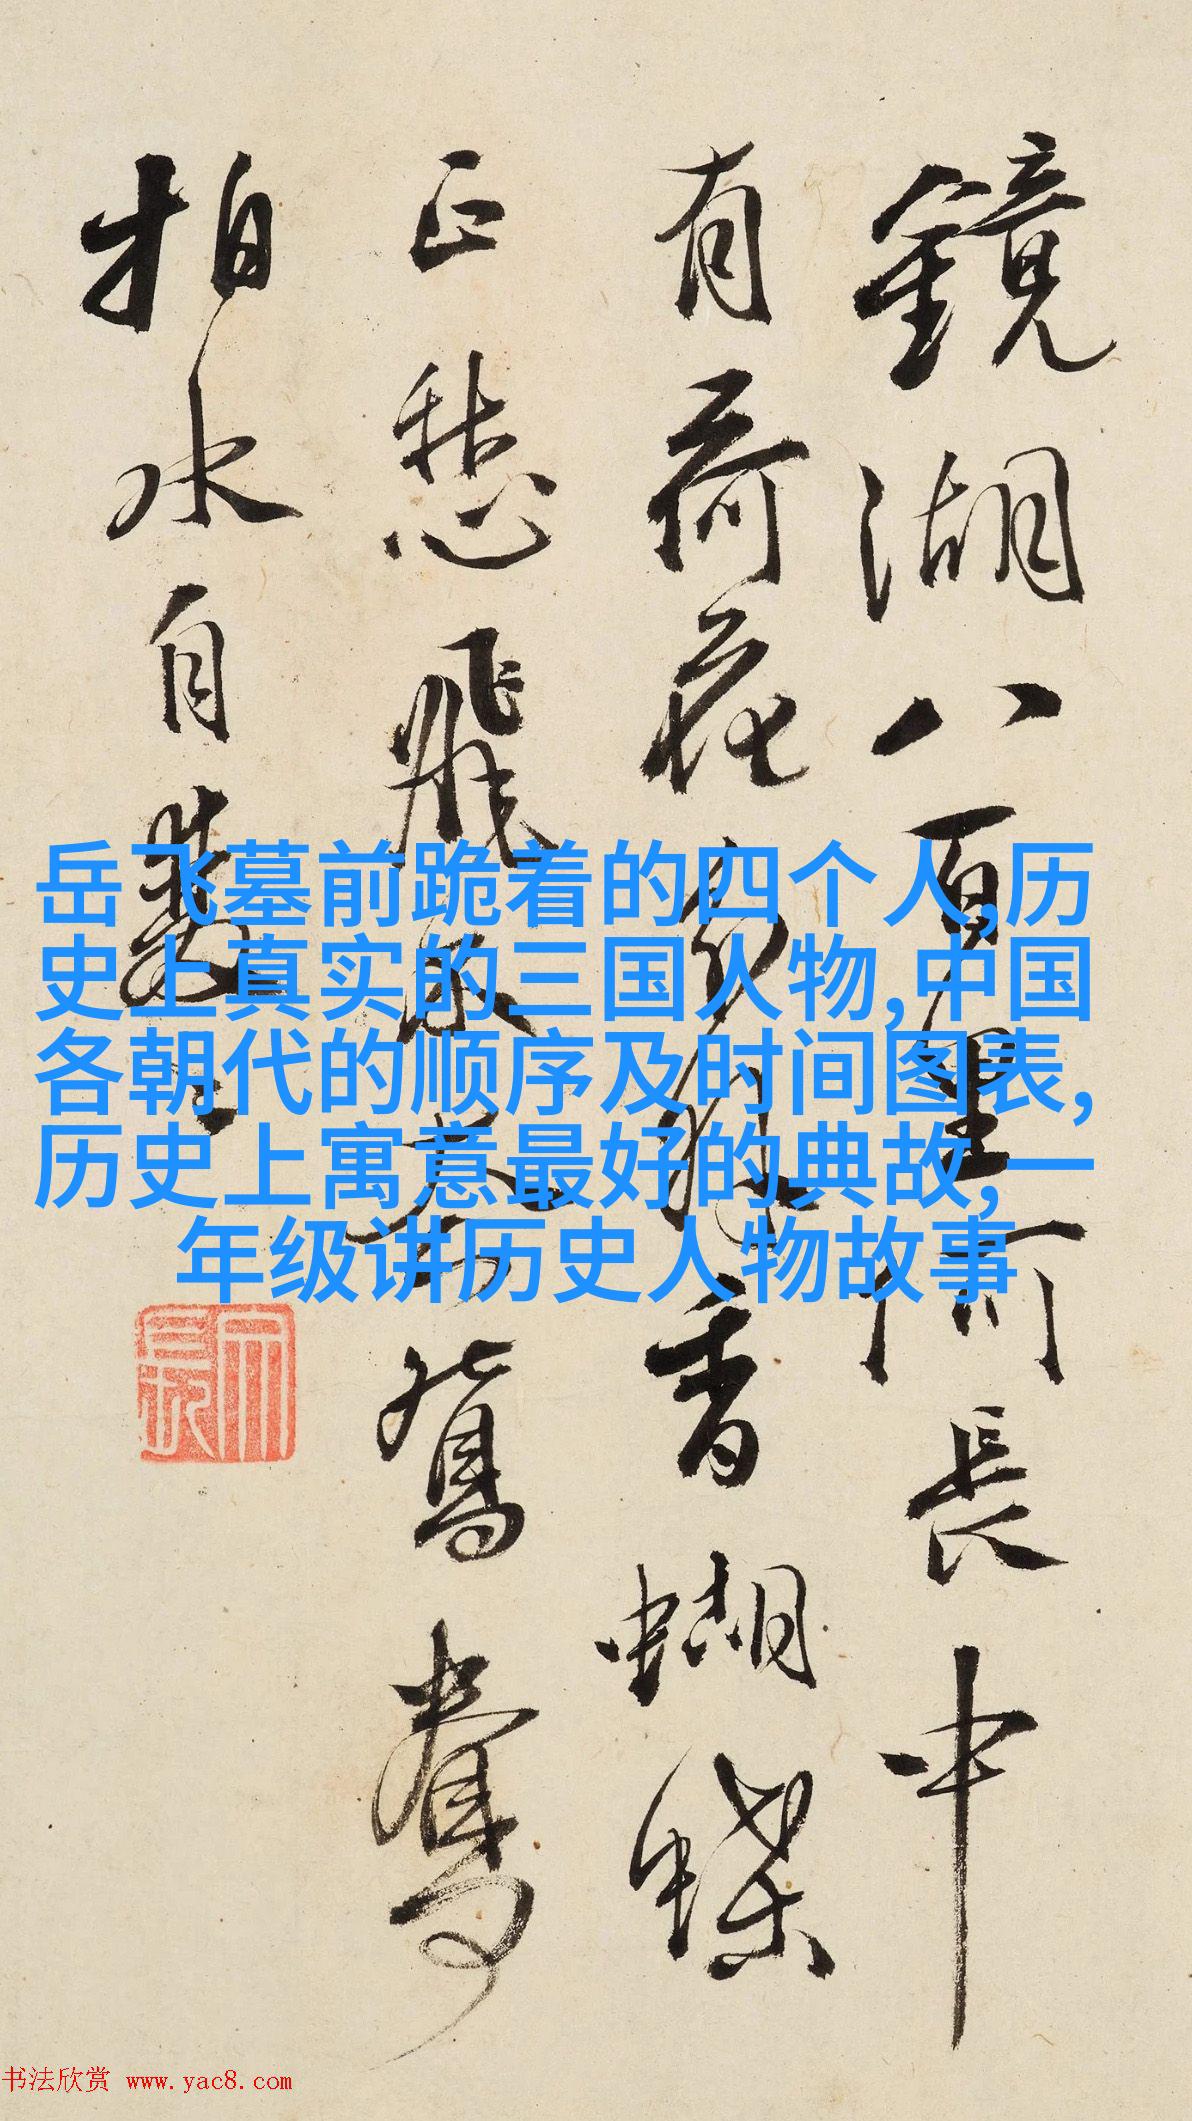 鏡湖八百里何長中
有荷花分外香蝴蝶
正愁飛不鴛鴦
拍水自雙〻
岳飞墓前跪着的四个人,历
史上真实的三国人物,中国
各朝代的顺序及时间图表,
历史上寓意最好的典故,一
年级讲历史人物故事
书法欣赏 www.yac8.com